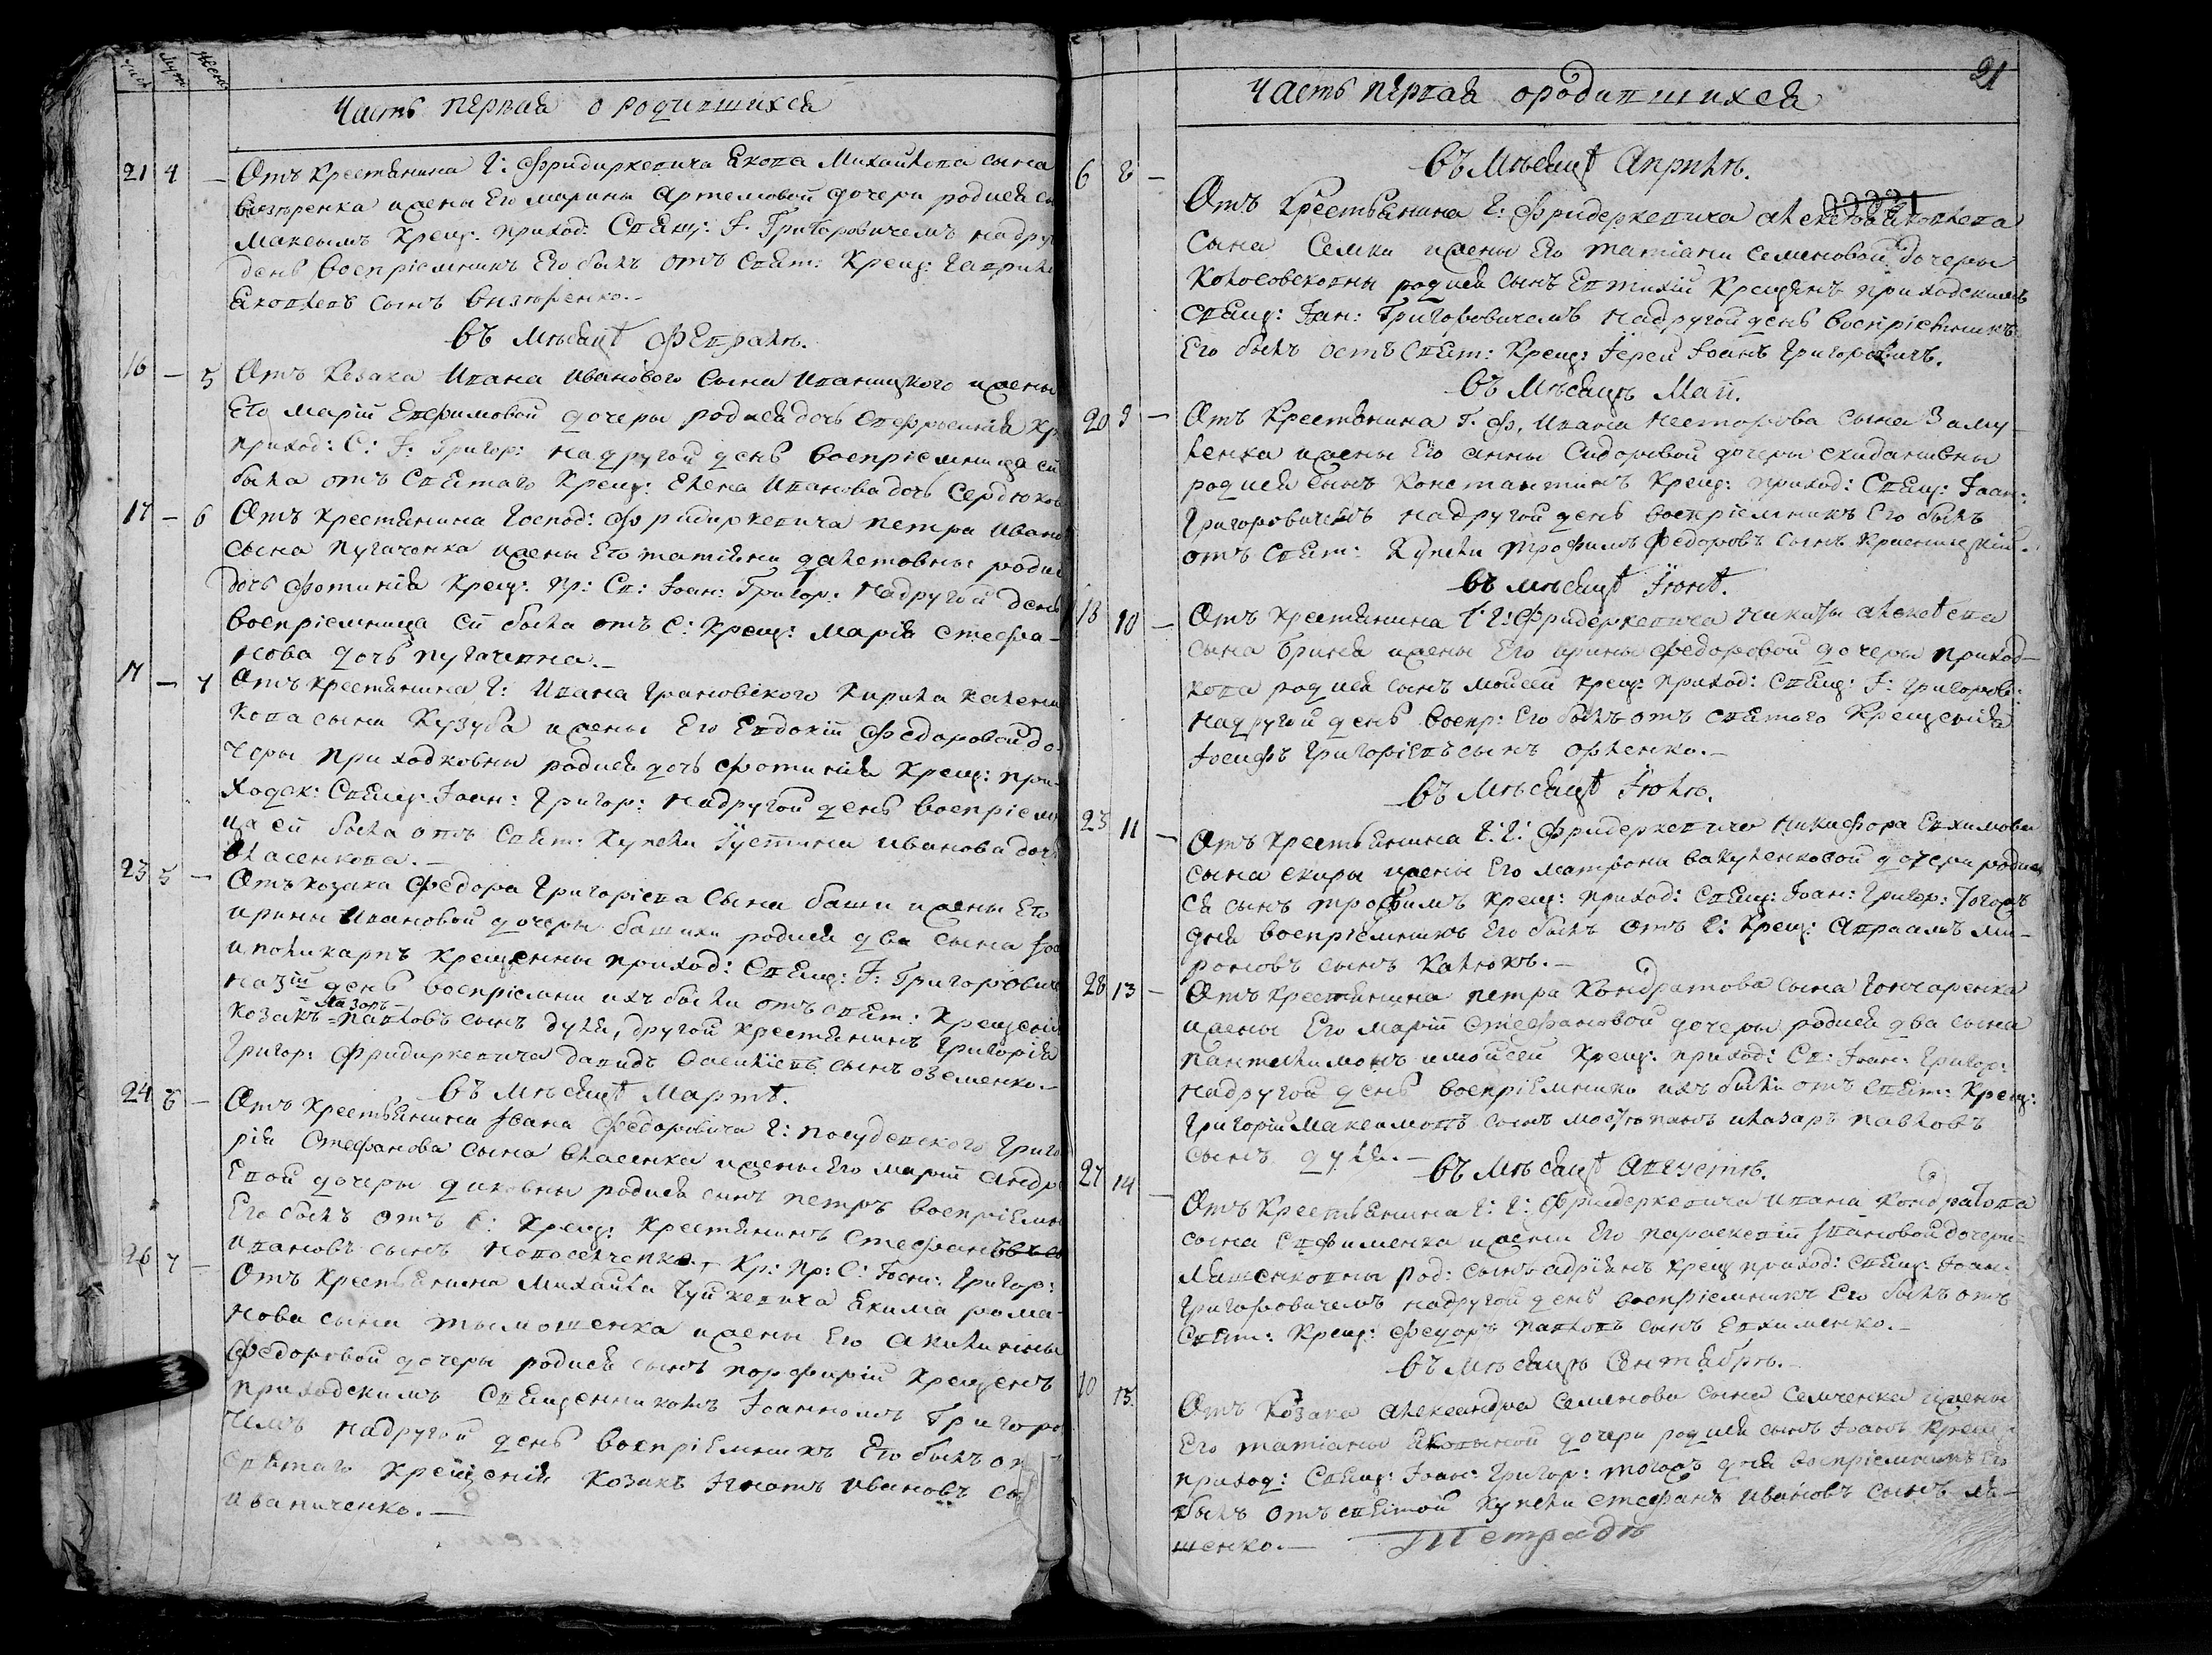 Число Муж: Жен:
Часть первая о родившихся
21 4 — Отъ Крестянина Г: Фридиркевича Якова Михайлова сына
Визѣренка и жены Его марины Артемовой дочери родися сы
Максымъ Крещ: приход: Свящ: І. Григоровичемъ на друг
день воспріемникъ Его былъ отъ Свят: Крещ: Гаврило
Яковлевъ сынъ Визѣренко.—
Въ Мѣсяцѣ Февралѣ.
16 — 5 Отъ Козака Ивана Иванового сына Иваницкого и жены
Его маріи Евфимовой дочеры родися дочь Евфросинія Кр:
приход: С: І: Григор: на другой день воспріемница ей
была отъ Святаго Крещ: Елена Иванова дочь Сердюков
17 — 6 Отъ Крестянина Господ: Фридиркевича Петра Иванов
сына Пугаченка и жены Его татіяни далетовны родис
дочь Фотинія Крещ: пр: Св: Іоан: Григор: на другой день
воспріемница ей была отъ С: Крещ: Марія Стефа-
нова дочь пугачевна.—
17 — 7 Отъ Крестянина Г: Ивана Грановского Кирила Калени
кова сына Кузуба и жены Его Евдокіи Федоровой до-
черы Приходковны родися дочь Фотинія Крещ: при-
ходск: Свящ: Іоан: Григор: на другой день воспріемн
ца ей была отъ Свят: Купели Іустина Иванова доч
Власенкова.—
23 5 — Отъ Козака Федора Григоріева сына Баши и жены Его
ирины Ивановой дочеры башихи родися два сына Іоа
и поликарпъ Крещенны приход: Свящ: І: Григорович
на 3ій день воспріемни ихъ были отъ Свят: Крещенія
= Лазоръ =
Козакъ Павловъ сынъ Дуля, другой Крестянинъ Григорія
Григор: Фридиркевича давидъ Василіевъ сынъ Оземенко.—
Въ Мѣсяцѣ Мартѣ.
24 6 — Отъ Крестьянина Іоана Федоровича Г: Полудепского Григо
рія Стефанова сына Власенка и жены Его маріи Андр
Евой дочеры диковны родися сынъ петръ воспріемн
Его былъ отъ С: Крещ: Крестянинъ Стефанъ
Ивановъ сынъ Новоселченко. Кр: пр: С: Іоан: Григор:
26 7 — Отъ Крестьянина Михайла Гуйкевича Якима рома-
нова сына тымошенка и жены Его Акилины
Федоровой дочеры родися сынъ порфирій Крещенъ
приходскимъ Священникомъ Іоанномъ Григоро
чемъ на другой день воспріемникъ Его былъ от
Святаго Крещенія Козакъ Ігнатъ Ивановъ сы
Иваниченко.—
21
Часть первая о родившихся
Въ Мѣсяцѣ Априлѣ.
6 8 — Отъ Крестьянина Г: Фридеркевича Алексѣя Яковлева
сына Семки и жены Его татіани Семеновой дочеры
Колосовсковны родися сынъ Евтихій Крещенъ приходскимъ
Свящ: Іоан: Григоровичемъ на другой день воспріемникъ
Его былъ от Свят: Крещ: Іерей Іоанъ Григоровичъ.
Въ Мѣсяцѣ Маіи.
20 9 — Отъ Крестянина Г. Ф. Ивана Несторова сына Заму-
ленка и жены Его анны Сидоровой дочеры схиданивны
родися сынъ Константинъ Крещ: приход: Свящ: Іоан:
Григоровичемъ на другой день воспріемникъ Его былъ
отъ Свят: Купели Трофимъ Федоровъ сынъ Красницкій.
Въ мѣсяцѣ Іюнѣ.
13 10 — Отъ Крестянина Г: Г: Фридеркевича Никиты Алексѣева
сына Гриня и жены Его ирины Федоровой дочеры приход-
кова родися сынъ Моисей Крещ: приход: Свящ: І: Григорови:
на другой день воспр: Его былъ отъ святаго Крещенія
Іосифъ Григоріевъ сынъ Орленко.—
Въ Мѣсяцѣ Іюлѣ.
23 11 — Отъ Крестьянина Г: Г: Фридеркевича Никифора Евхимова
сына скиры и жены Его матроны Вакуленковой дочери роди
ся сынъ трофимъ Крещ: приход: Свящ: Іоан: Григор: Тогожъ
дня воспріемникъ Его былъ отъ С: Крещ: Авраамъ Ми-
роновъ сынъ Калюжъ.—
28 13 — Отъ Крестянина петра Кондратова сына Гончаренка
и жены Его маріи Стефановой дочеры родися два сына
пантелимонъ и моисей Крещ: приход: Св: Іоан: Григор:
на другой день воспріемники ихъ были отъ Свят: Крещ:
Григорій Максимовъ сынъ и лазаръ павловъ
сынъ дуля.—
Въ Мѣсяцѣ Августѣ.
27 14 — Отъ Крестьянина Г: Г: Фридеркевича Ивана Кондратова
сына Евфименка и жены Его параскевіи Івановой дочери-
Ляшенковны род: сынъ адріянъ Крещ приход: Свящ: Іоан:
Григоровичемъ на другой день воспріемникъ Его былъ отъ
Свят: Крещ: Федоръ павловъ сынъ Евхименко.—
Въ Мѣсяцѣ Сентябрѣ.
10 15. Отъ Козака Александра Семенова сына Семченка и жены
Его татіаны Яковлевой дочери родися сынъ Іоанъ Крещ:
приход: Свящ: Іоан: Григор: тогожъ дня воспріемникъ Его
былъ отъ святой Купели Стефанъ Ивановъ сынъ Ля-
шенко.— Тетрадь